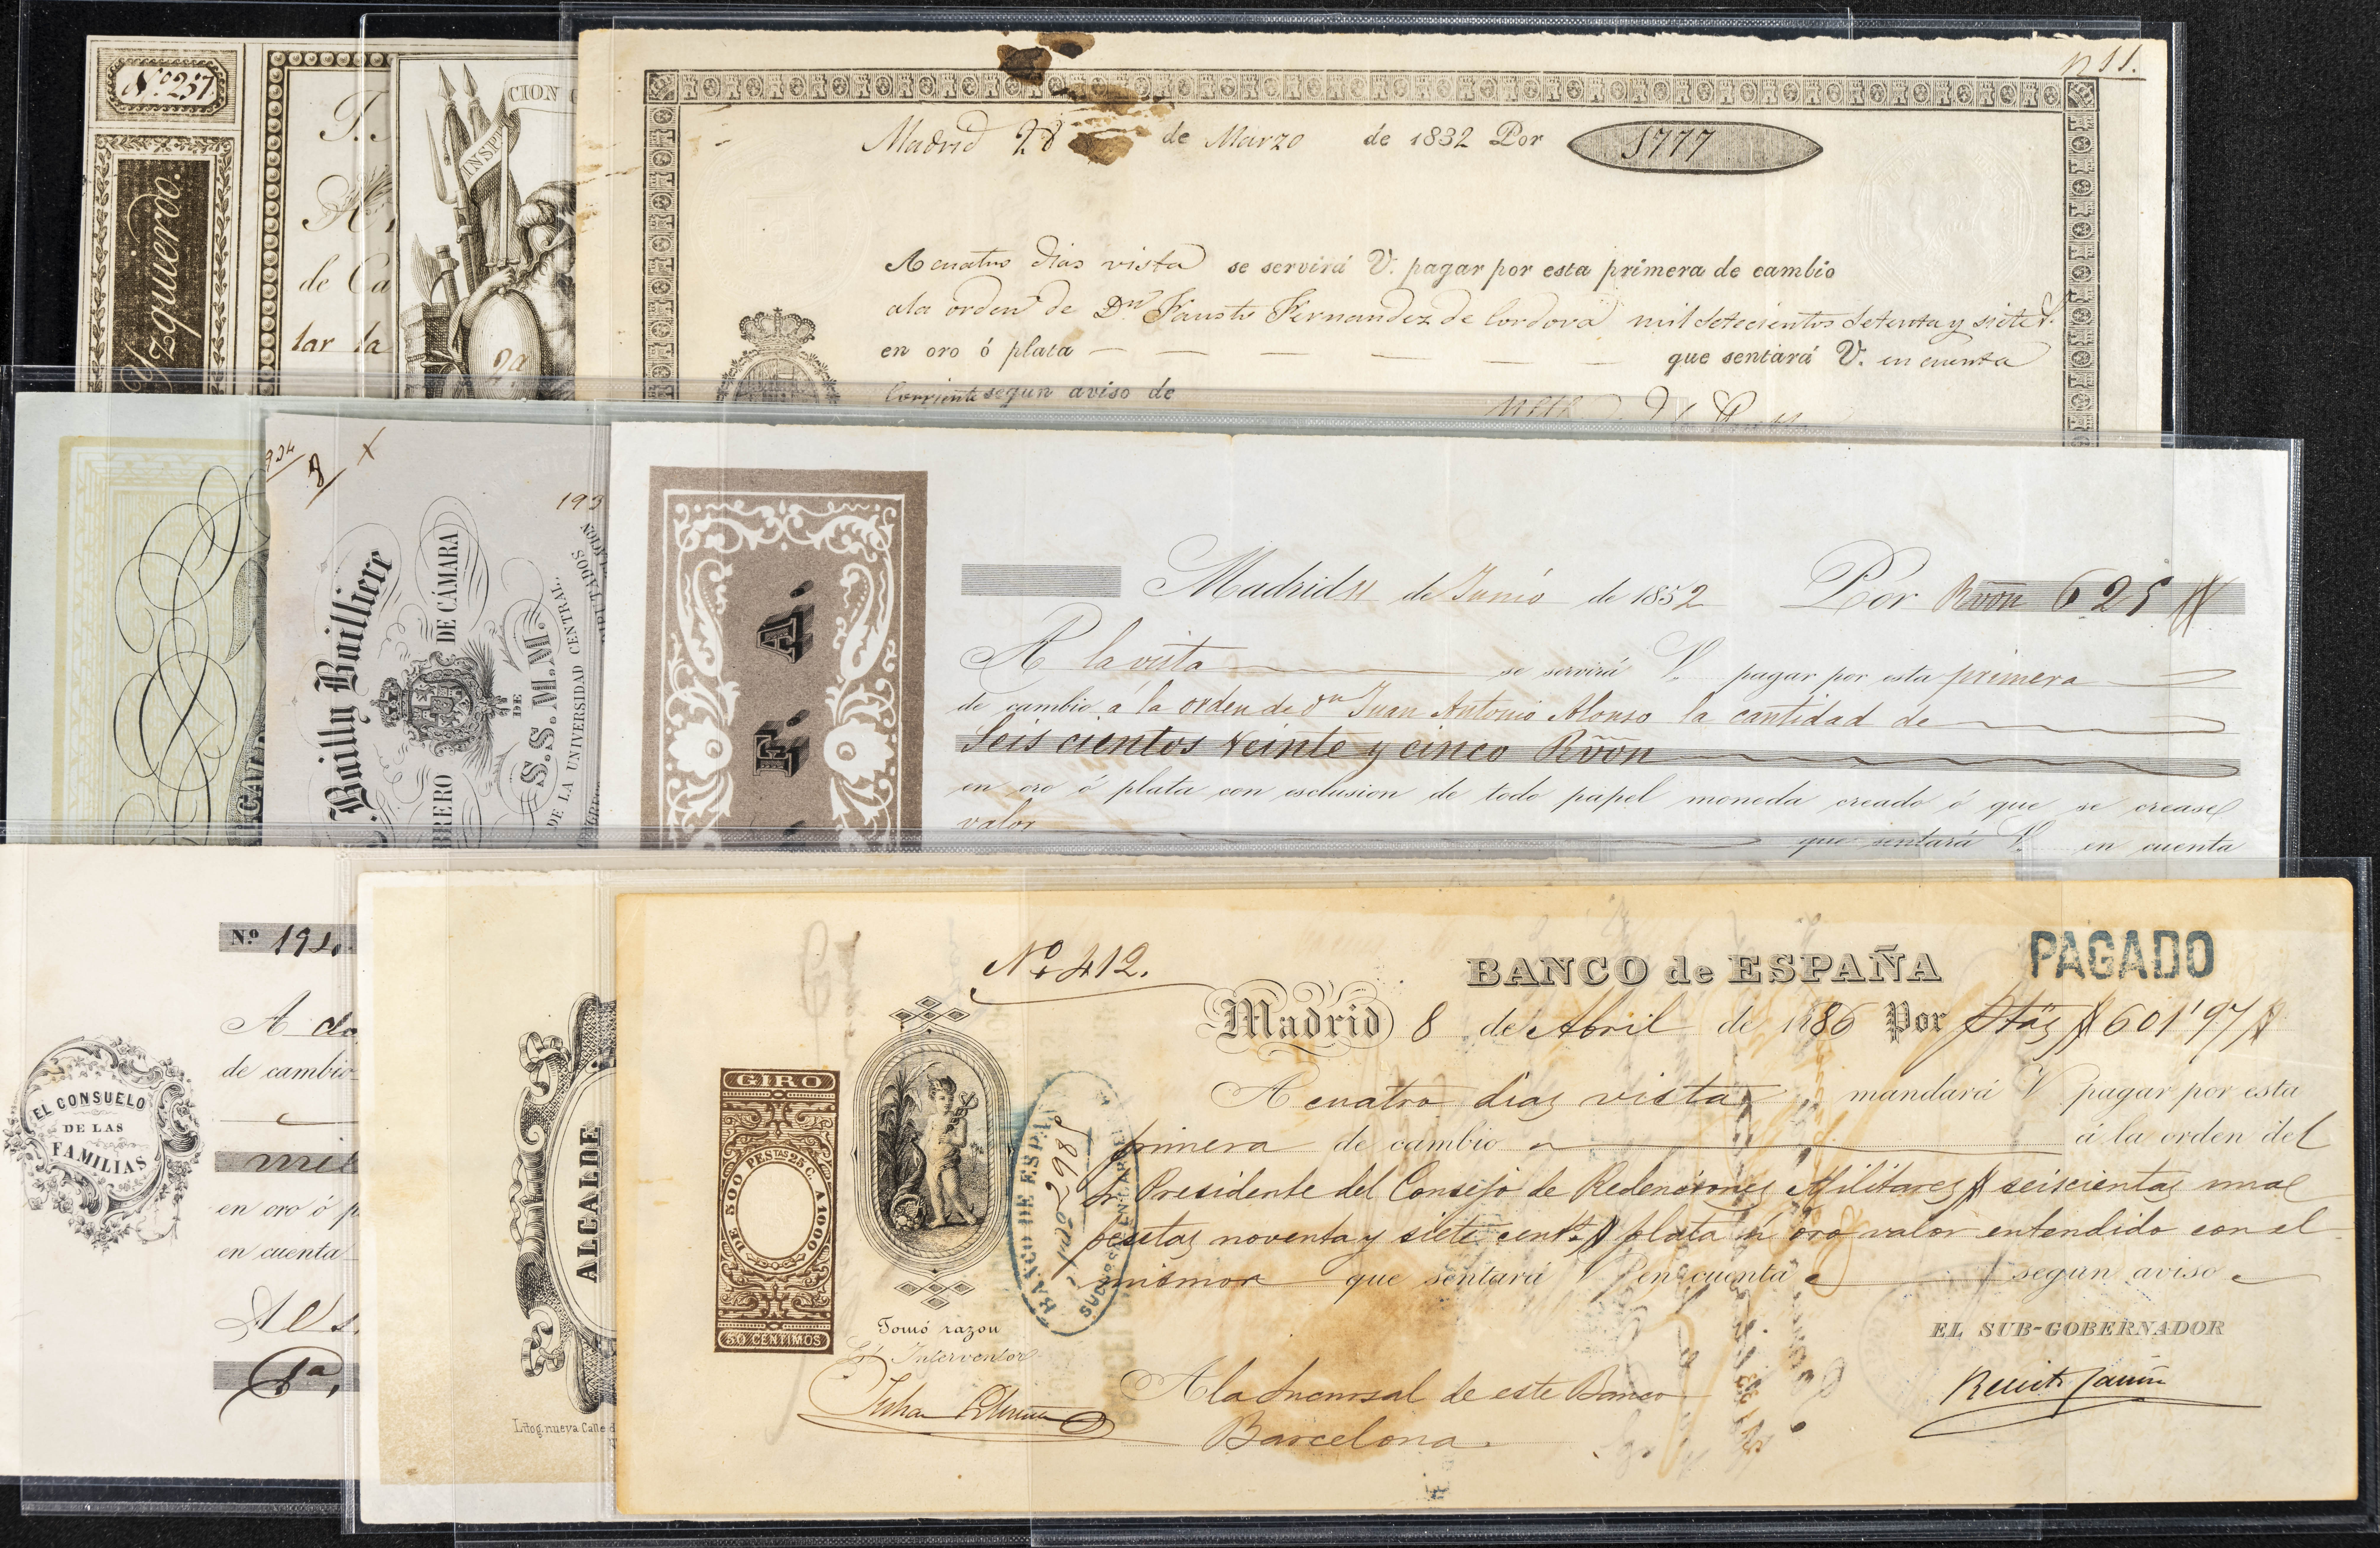 Nº 237.
Yzquierdo.
de Ca
lar la
CION
INSP
2ª
n 11.
Madrid 28 de Marzo de 1832 Por 1777
A cuatro dias vista se servirá V. pagar por esta primera de cambio
a la orden de Dn Fausto Fernandez de Cordova mil setecientos setenta y siete
en oro ó plata que sentará V. en cuenta
Corriente segun aviso de
8
193
Bailly Bailliere
BRERO DE CÁMARA
DE
S.S. M.M.
DE LA UNIVERSIDAD CENTRAL
F. A.
Madrid 11 de Junio de 1852 Por Rvon 625
A la vista se servirá V. pagar por esta primera
de cambio á la orden de Dn Juan Antonio Alonso la cantidad de
Seis cientos Veinte y cinco Rvon
en oro ó plata con esclusion de todo papel moneda creado ó que se crease
valor que sentará V. en cuenta
Nº 194.
A
de cambio
mil
en oro ó p
en cuenta
1ª,
EL CONSUELO
DE LAS
FAMILIAS
ALCALDE
Litog. nueva Calle d
Nº 412.
BANCO de ESPAÑA
PAGADO
Madrid 8 de Abril de 1886 Por Ptas 601'97
A cuatro dias vista mandará V pagar por esta
primera de cambio á la orden del
Sr Presidente del Consejo de Redenciones Militares seiscientas una
pesetas noventa y siete cents plata ú oro valor entendido con el
mismo que sentará V en cuenta segun aviso
GIRO
DE 500 PESTAS 25 C. A 1000
50 CENTIMOS
BANCO DE ESPAÑA
2985
SUCURSALES
Tomó razon
El Interventor
EL SUB-GOBERNADOR
A la Sucursal de este Banco
Barcelona